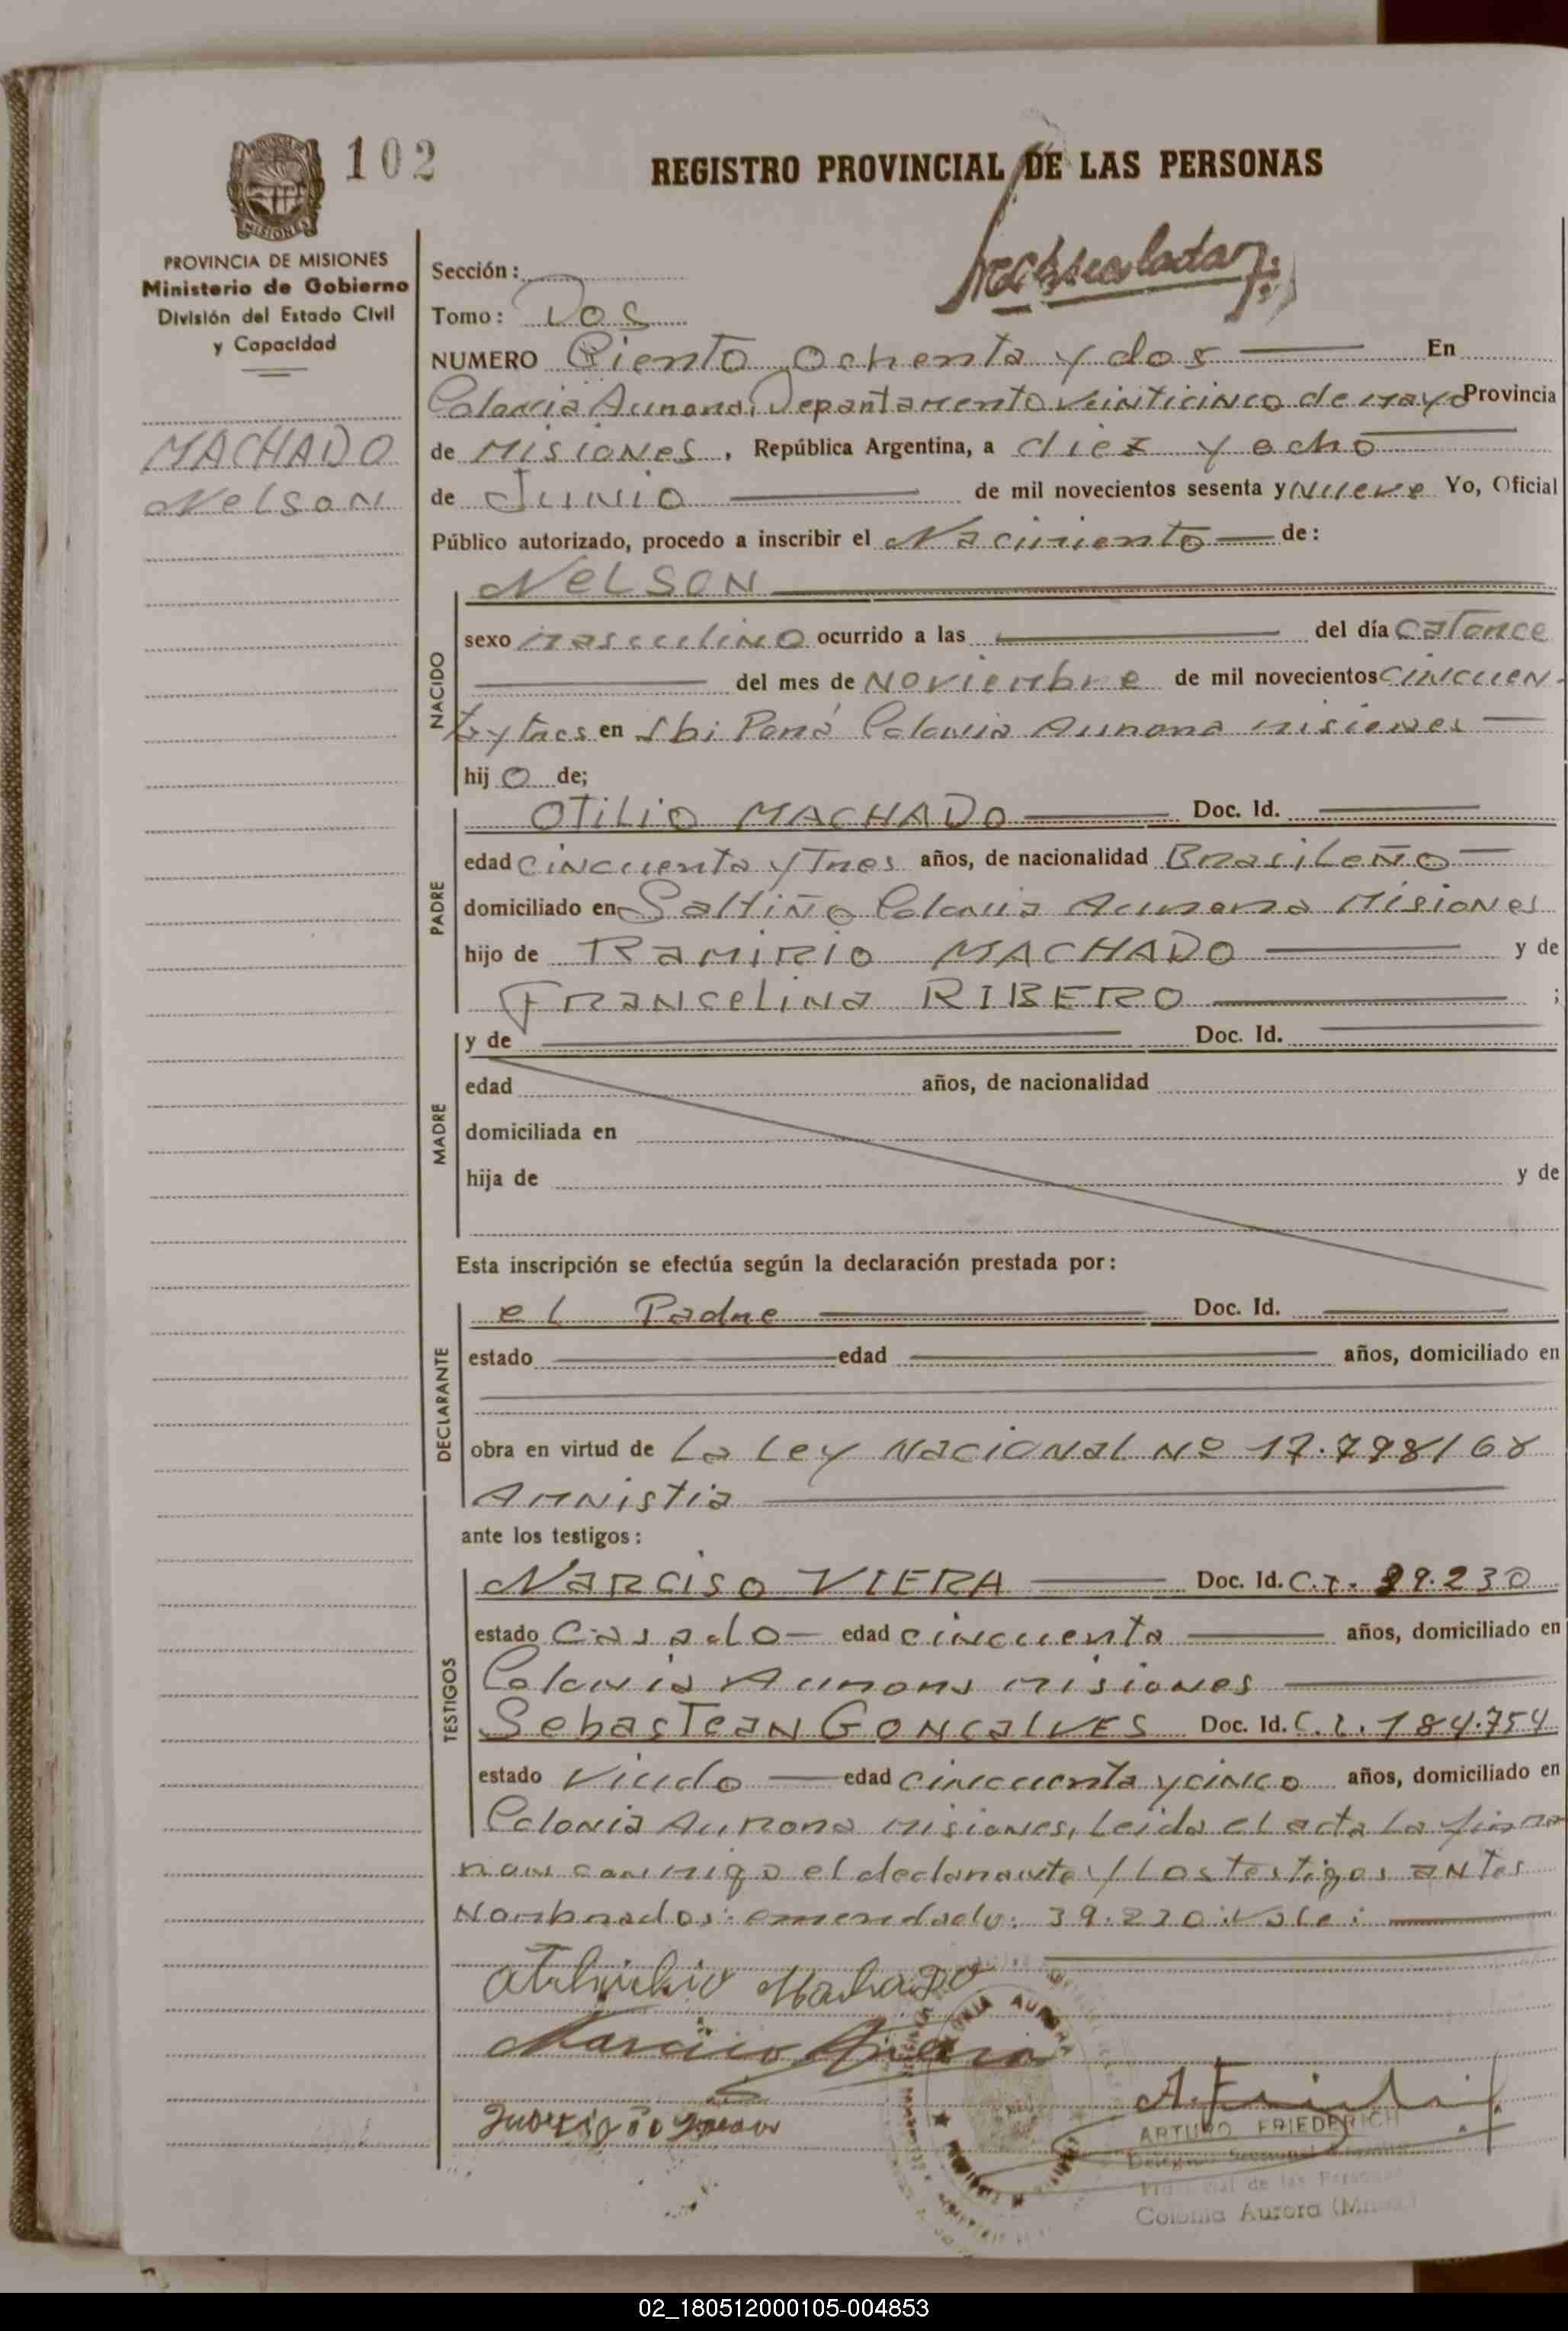 102
REGISTRO PROVINCIAL DE LAS PERSONAS
PROVINCIA DE MISIONES
Ministerio de Gobierno
División del Estado Civil
y Capacidad
MACHADO
Nelson
Sección:
Tomo: Dos
NUMERO Ciento Ochenta y dos En
Colonia Aurora, Departamento Veinticinco de mayo Provincia
de MISIONES, República Argentina, a diez y ocho
de Junio de mil novecientos sesenta y Nueve Yo, Oficial
Público autorizado, procedo a inscribir el Nacimiento de:
NELSON
NACIDO
sexo masculino ocurrido a las del día catorce
del mes de Noviembre de mil novecientos CINCUEN-
ta y tres en Ibi Porá Colonia Aurora misiones
hijo de;
PADRE
OTILIO MACHADO Doc. Id.
edad cincuenta y Tres años, de nacionalidad Brasileño
domiciliado en Saltiño Colonia Aurora Misiones
hijo de RAMIRIO MACHADO y de
FRANCELINA RIBERO ;
MADRE
y de Doc. Id.
edad años, de nacionalidad
domiciliada en
hija de y de
Esta inscripción se efectúa según la declaración prestada por:
DECLARANTE
el Padre Doc. Id.
estado edad años, domiciliado en
obra en virtud de La Ley Nacional Nº 17.798/68
AMNistia
ante los testigos:
TESTIGOS
NARCISO VIERA Doc. Id. C.I. 39.230
estado Casado edad cincuenta años, domiciliado en
Colonia Aurora misiones
SebasTeAN GONCALVES Doc. Id. C.I. 184.754
estado Viudo edad cincuenta y cinco años, domiciliado en
Colonia Aurora misiones, Leida el acta La firma
ron conmigo el declarante y Los testigos antes
Nombrados: enmendado: 39.230: Vale:
Machado
Narciso Viera
ARTURO FRIEDERICH
Colonia Aurora
02_180512000105-004853